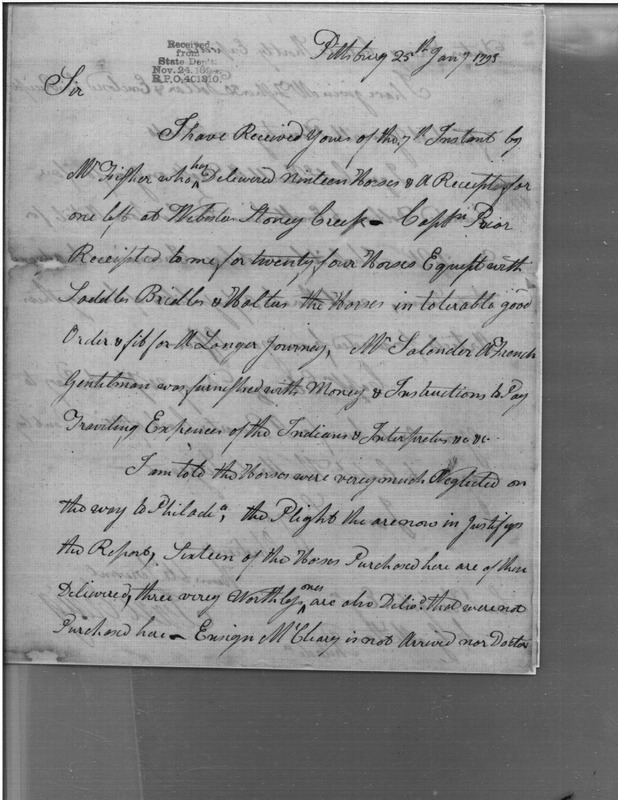 Received
from
State Dept.
Nov. 24. 1894.
R.P.O. 401310.
Pittsburg 25th Jany 1793
Sir
I have Received Yours of the 7th Instant by
Mr Fisher who has Delivered Nineteen Horses & A Receipt for
one left at Webster Stoney Creek – Captn Prior
Receipted to me for twenty four Horses Equipt with
Saddles Bridles & Halters the Horses in tolerable good
Order & fit for A Longer Journey, Mr Salonder A French
Gentelman was furnished with Money & Instructions to Pay
Traveling Expences of the Indians & Interpretus &c &c.
I am told the Horses were verey much Neglected on
the way to Philada, the Plight the are now in Justifys
the Report, Sixteen of the Horses Purchased here are of these
Delivered, three verey Worthless ones are also Delivd that were not
Purchased here – Ensign McCleary is not Arrived nor Doctor